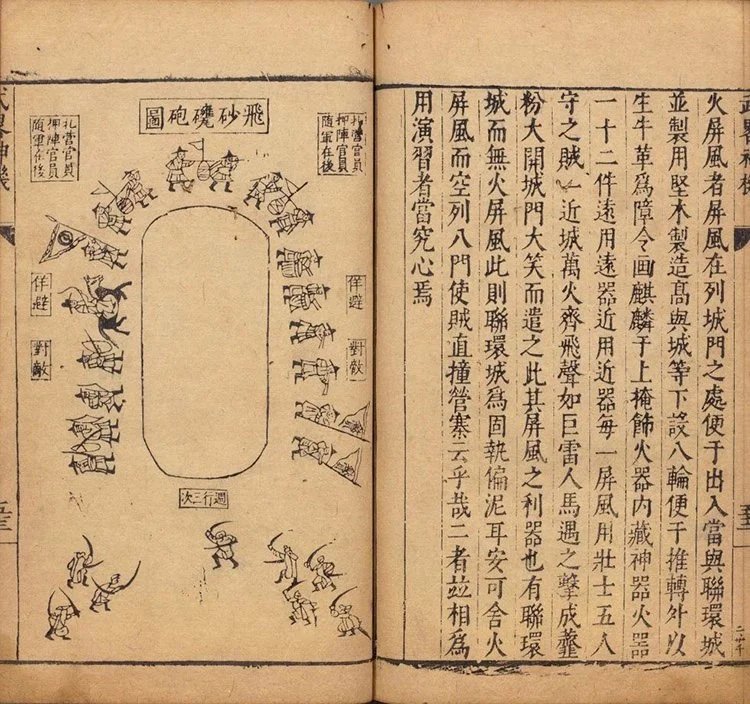 火屏風者屏風在列城門之處便于出入當與聯環城
並製用堅木製造高與城等下設八輪便于推轉外以
生牛革爲障令画麒麟于上掩飾火器内藏神器火器
一十二件遠用遠器近用近器每一屏風用壯士五人
守之賊一近城萬火齊飛聲如巨雷人馬遇之擊成虀
粉大開城門大笑而遣之此其屏風之利器也有聯環
城而無火屏風此則聯環城爲固執偏泥耳安可舍火
屏風而空列八門使賊直撞營寨云乎哉二者並相爲
用演習者當究心焉
飛砂砲圖
札營官員
押陣官員
隨軍在後
佯避
對敵
札營官員
押陣官員
隨軍在後
佯避
對敵
週行三次
武畧神機